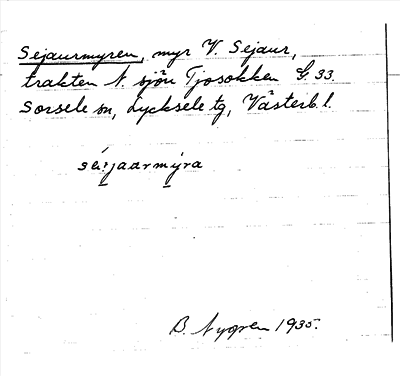 Sejaurmyren, myr V. Sejaur,
trakten N. sjön Tjosokken G. 33.
Sorsele sn, Lycksele tg, Västerb. l.
sé.ɪjaarmýra
B. Nygren 1935.